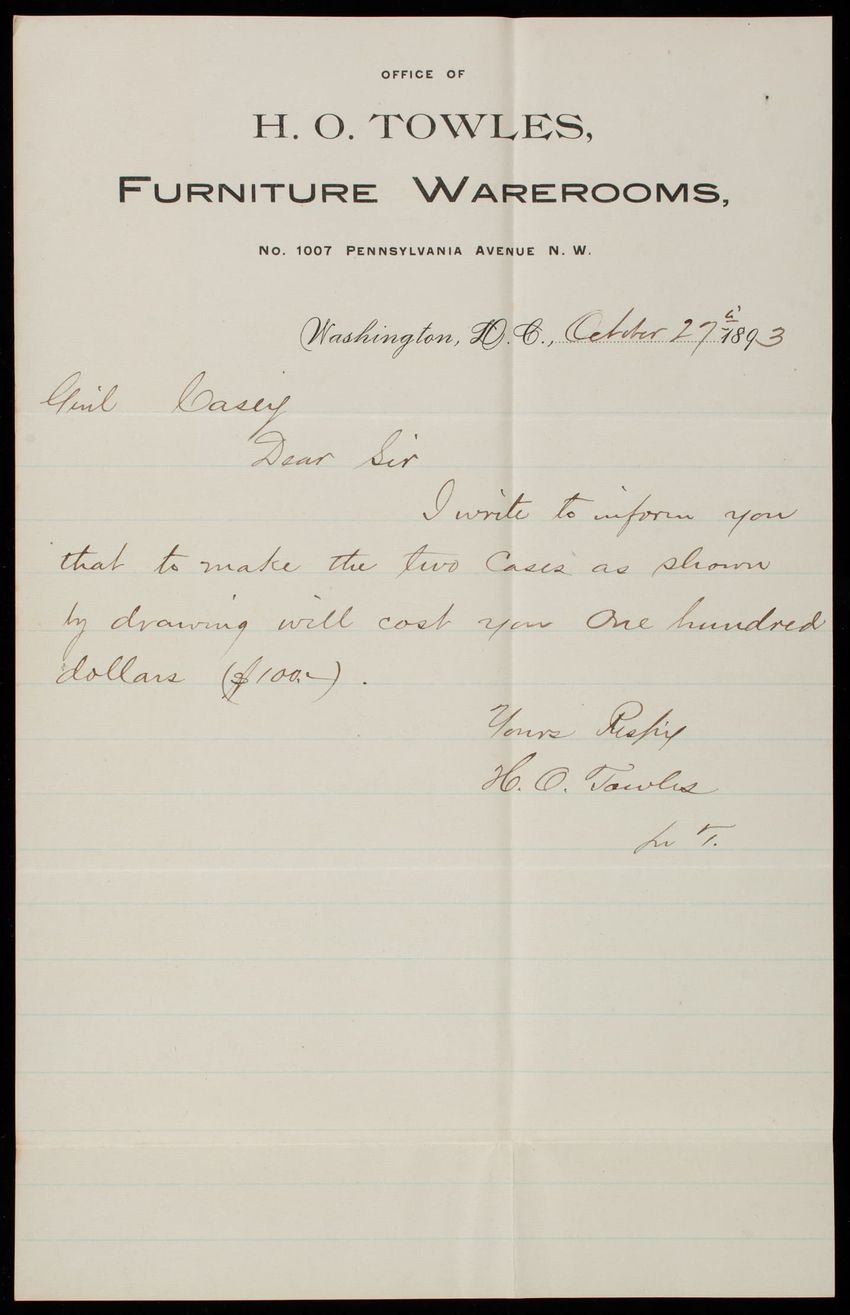 OFFICE OF
H. O. TOWLES,
FURNITURE WAREROOMS,
No. 1007 PENNSYLVANIA AVENUE N. W.
Washington, D. C., October 27th 1893
Genl Casey
Dear Sir
I write to inform you
that to make the two Cases as shown
by drawing will cost you One hundred
dollars ($100.—).
Yours Respy
H. O. Towles
per T.